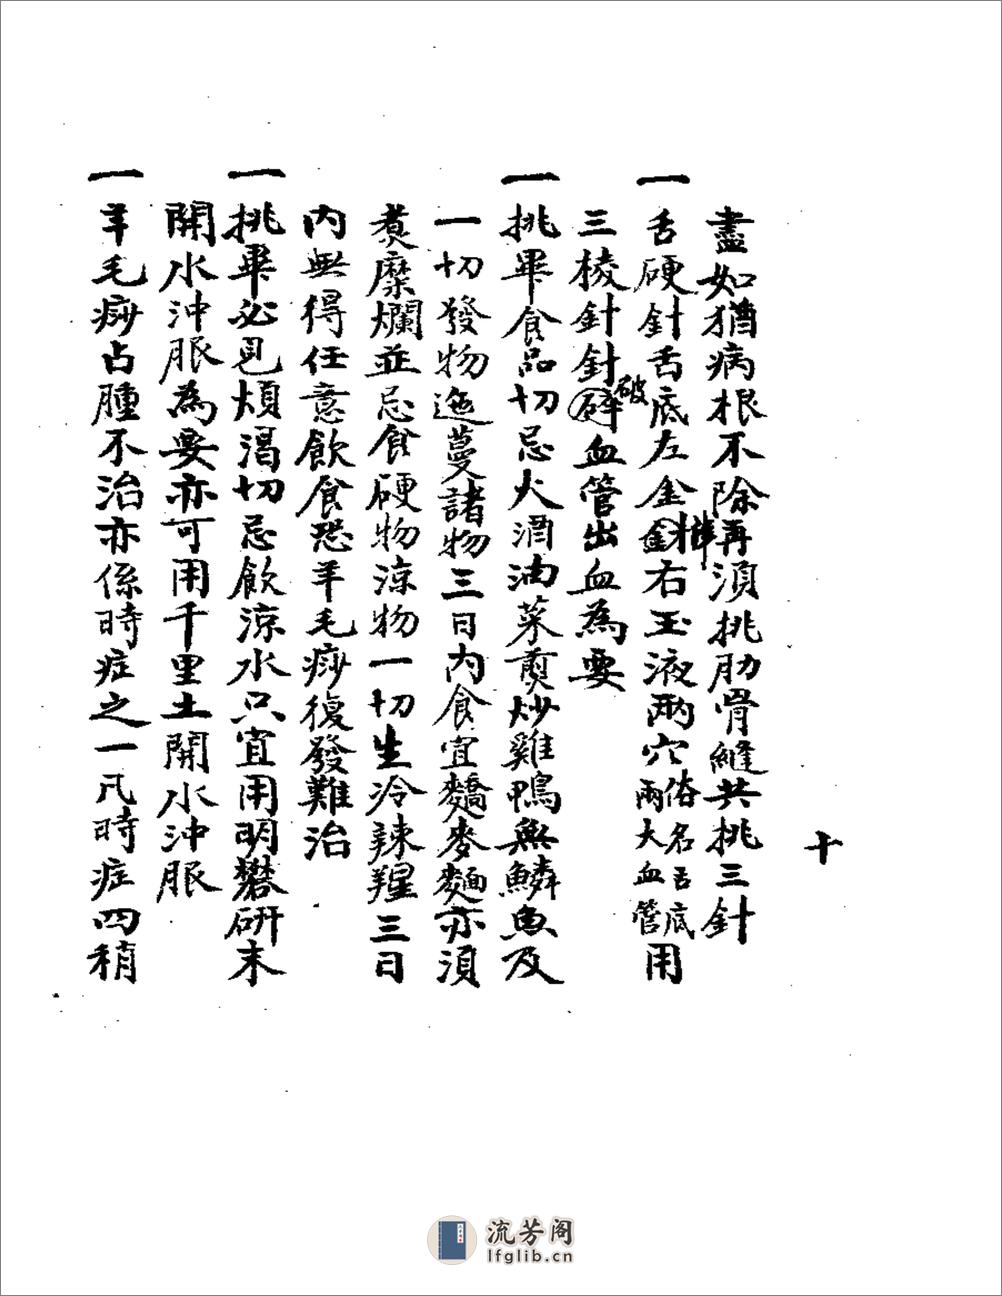 十
盡如猶病根不除再須挑肋骨縫共挑三針
一舌硬針舌底左金津右玉液兩穴俗名舌底兩大血管用
三棱針針破血管出血為要
一挑畢食品切忌火酒油菜煎炒雞鴨無鱗魚及
一切發物迤蔓諸物三日內食宜蕎麥麵亦須
煮糜爛並忌食硬物涼物一切生冷辣腥三日
內無得任意飲食恐羊毛痧復發難治
一挑畢必見煩渴切忌飲涼水只宜用明礬研末
開水沖服為要亦可用千里土開水沖服
一羊毛痧占腫不治亦係時症之一凡時症四稍
流芳阁
lfglib.cn